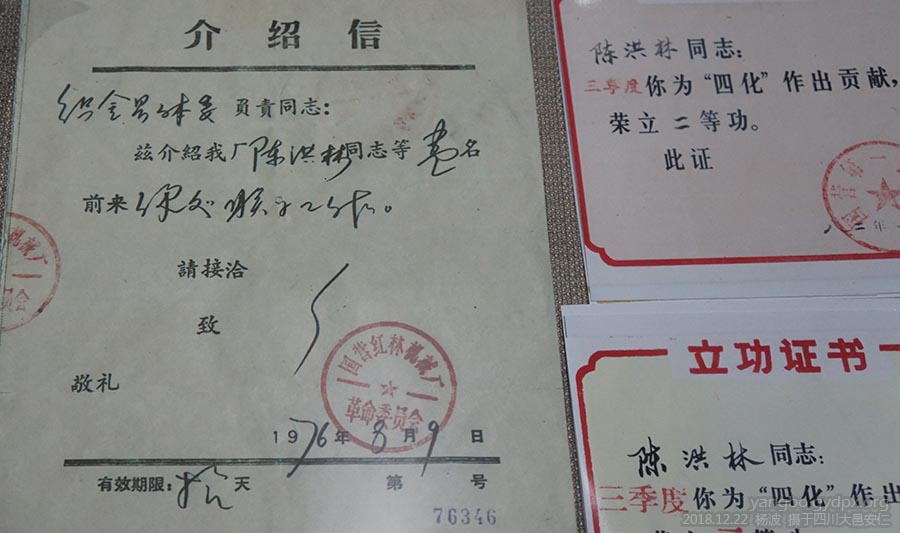 介绍信
织金县体委 負責同志：
兹介紹我厂陈洪林同志等壹名
前来 联系工作。
請接洽
致
敬礼
国营红林机械厂
革命委员会
1976年8月9日
有效期限：拾天 第 号
76346
机械厂
员会
陈洪林同志：
三季度你为“四化”作出贡献，
荣立二等功。
此证
国营第一
八二年
立功证书
陈洪林同志：
三季度你为“四化”作出
yangbo.gydpx.org
2018.12.22 杨波 摄于四川大邑安仁